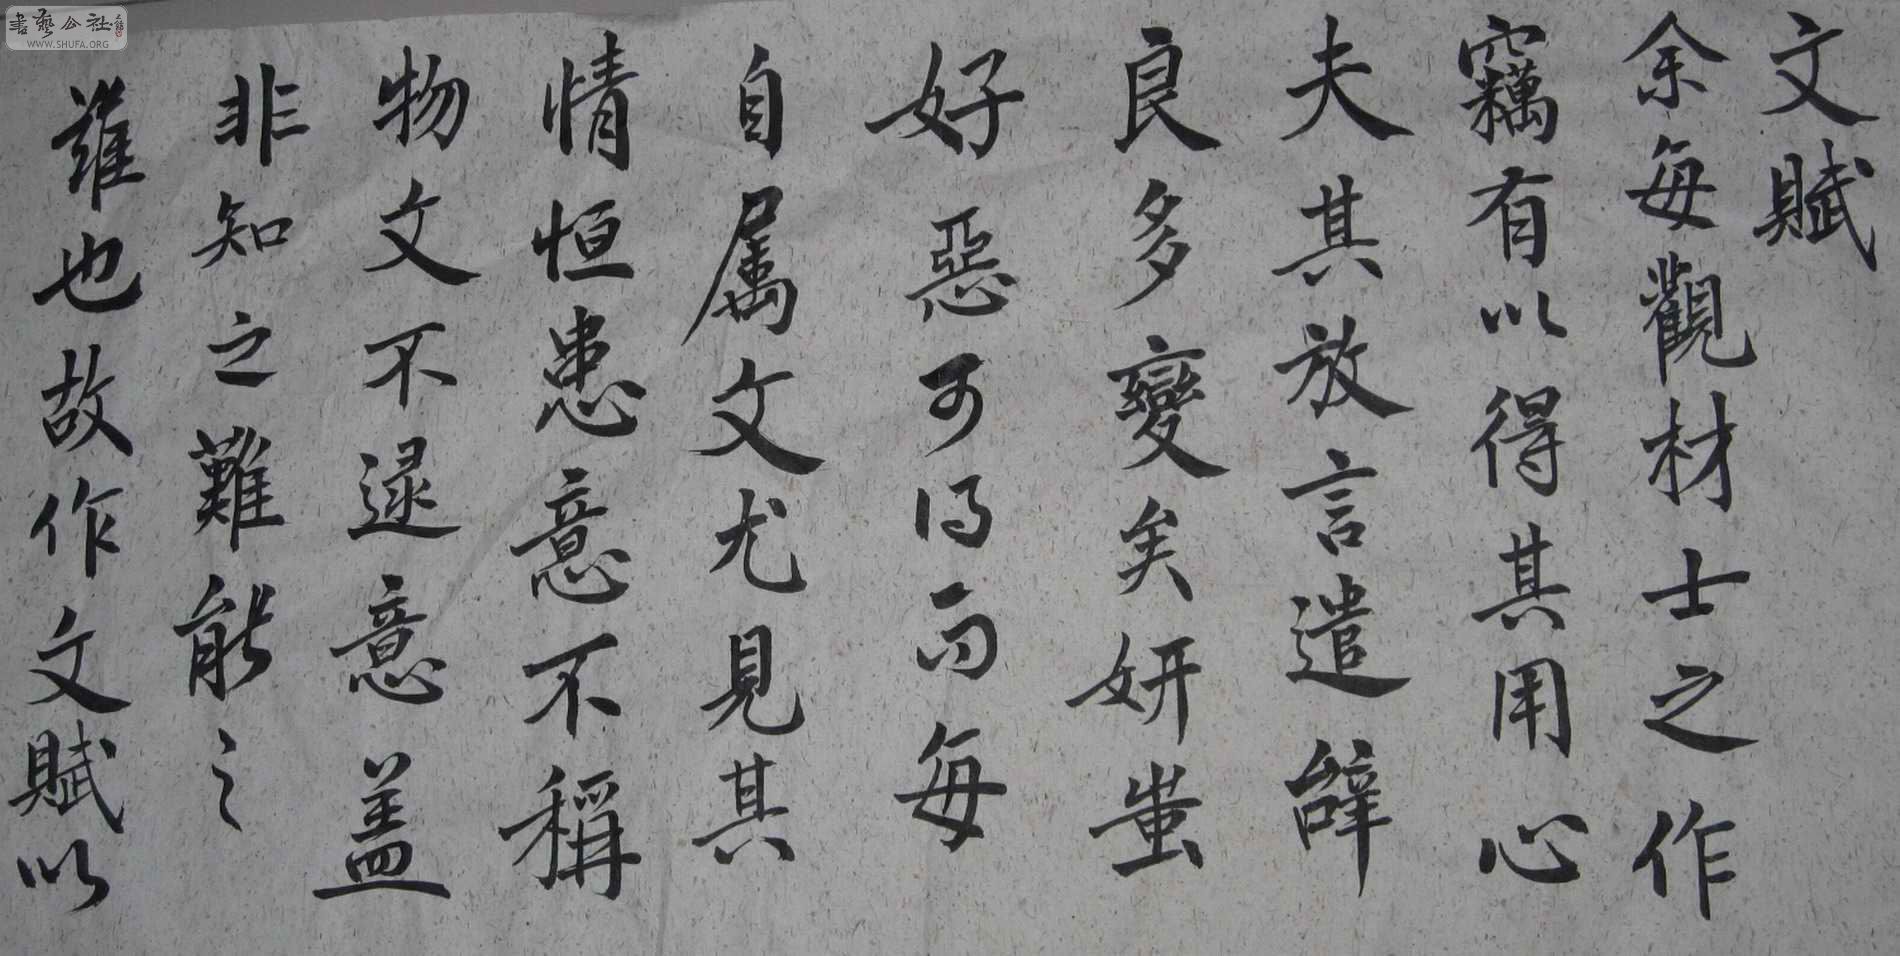 文賦
余每觀材士之作
竊有以得其用心
夫其放言遣辝
良多變矣妍蚩
好惡可得而每
自属文尤見其
情恒患意不稱
物文不逮意盖
非知之難能之
難也故作文賦以
書藝公社
WWW.SHUFA.ORG